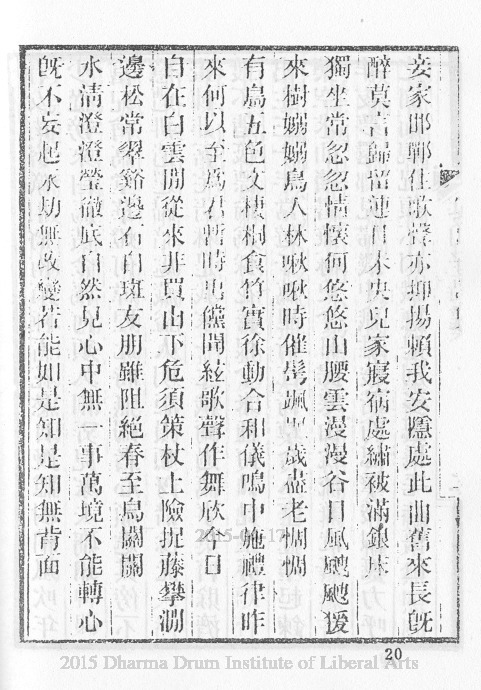 妾家邯鄲住歌聲亦抑揚賴我安隱處此曲舊來長旣
醉莫言歸留連日未央兒家寢宿處繡被滿銀牀
獨坐常忽忽情懷何悠悠山腰雲漫漫谷口風颼颼猨
來樹嫋嫋鳥入林啾啾時催鬢颯颯歲盡老惆惆
有鳥五色文棲桐食竹實徐動合和儀鳴中施禮律昨
來何以至爲君暫時出儻聞絃歌聲作舞欣今日
自在白雲閒從來非買山下危須策杖上險捉藤攀澗
邊松常翠谿邊石自斑友朋雖阻絕春至鳥關關
水清澄澄瑩徹底自然見心中無一事萬境不能轉心
旣不妄起永劫無改變若能如是知是知無背面
2015-0 -17
20
2015 Dharma Drum Institute of Liberal Arts